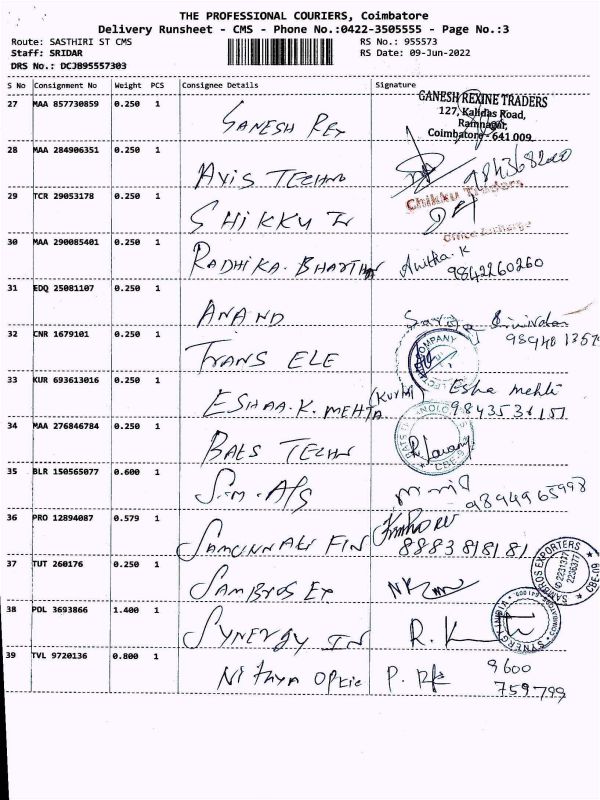 THE PROFESSIONAL COURIERS, Coimbatore
Delivery Runsheet - CMS - Phone No.:0422-3505555 - Page No.:3
Route: SASTHIRI ST CMS RS No.: 955573
Staff: SRIDAR RS Date: 09-Jun-2022
DRS No.: DCJB95557303
S No Consignment No Weight PCS Consignee Details Signature
27 MAA 857730859 0.250 1
GANESH REXINE TRADERS
127, Kalidas Road,
Ramnagar,
Coimbatore - 641 009
GANESH REX
28 MAA 284906351 0.250 1
AXIS TECHNO
29 TCR 29053178 0.250 1
Chikku Traders
SHIKKU
30 MAA 290085401 0.250 1
Office Incharge
RADHIKA. Anitha. K
9842260260
31 EDQ 25081107 0.250 1
ANAND
32 CNR 1679101 0.250 1
COMPANY
TRANS ELE
33 KUR 693613016 0.250 1
ESHAA.K. MEHTA Esha Mehta
34 MAA 276846784 0.250 1
BATS TECHN
35 BLR 150565077 0.600 1
9894965998
36 PRO 12894087 0.579 1
FIN 8883818181
37 TUT 260176 0.250 1
SAMBROS EXPORTERS
CBE-09
SAMBROS EX
38 POL 3693866 1.400 1
SYNERGY INDIA
SYNERGY IN R. K
39 TVL 9720136 0.800 1
Nithya Optic 9600
759799